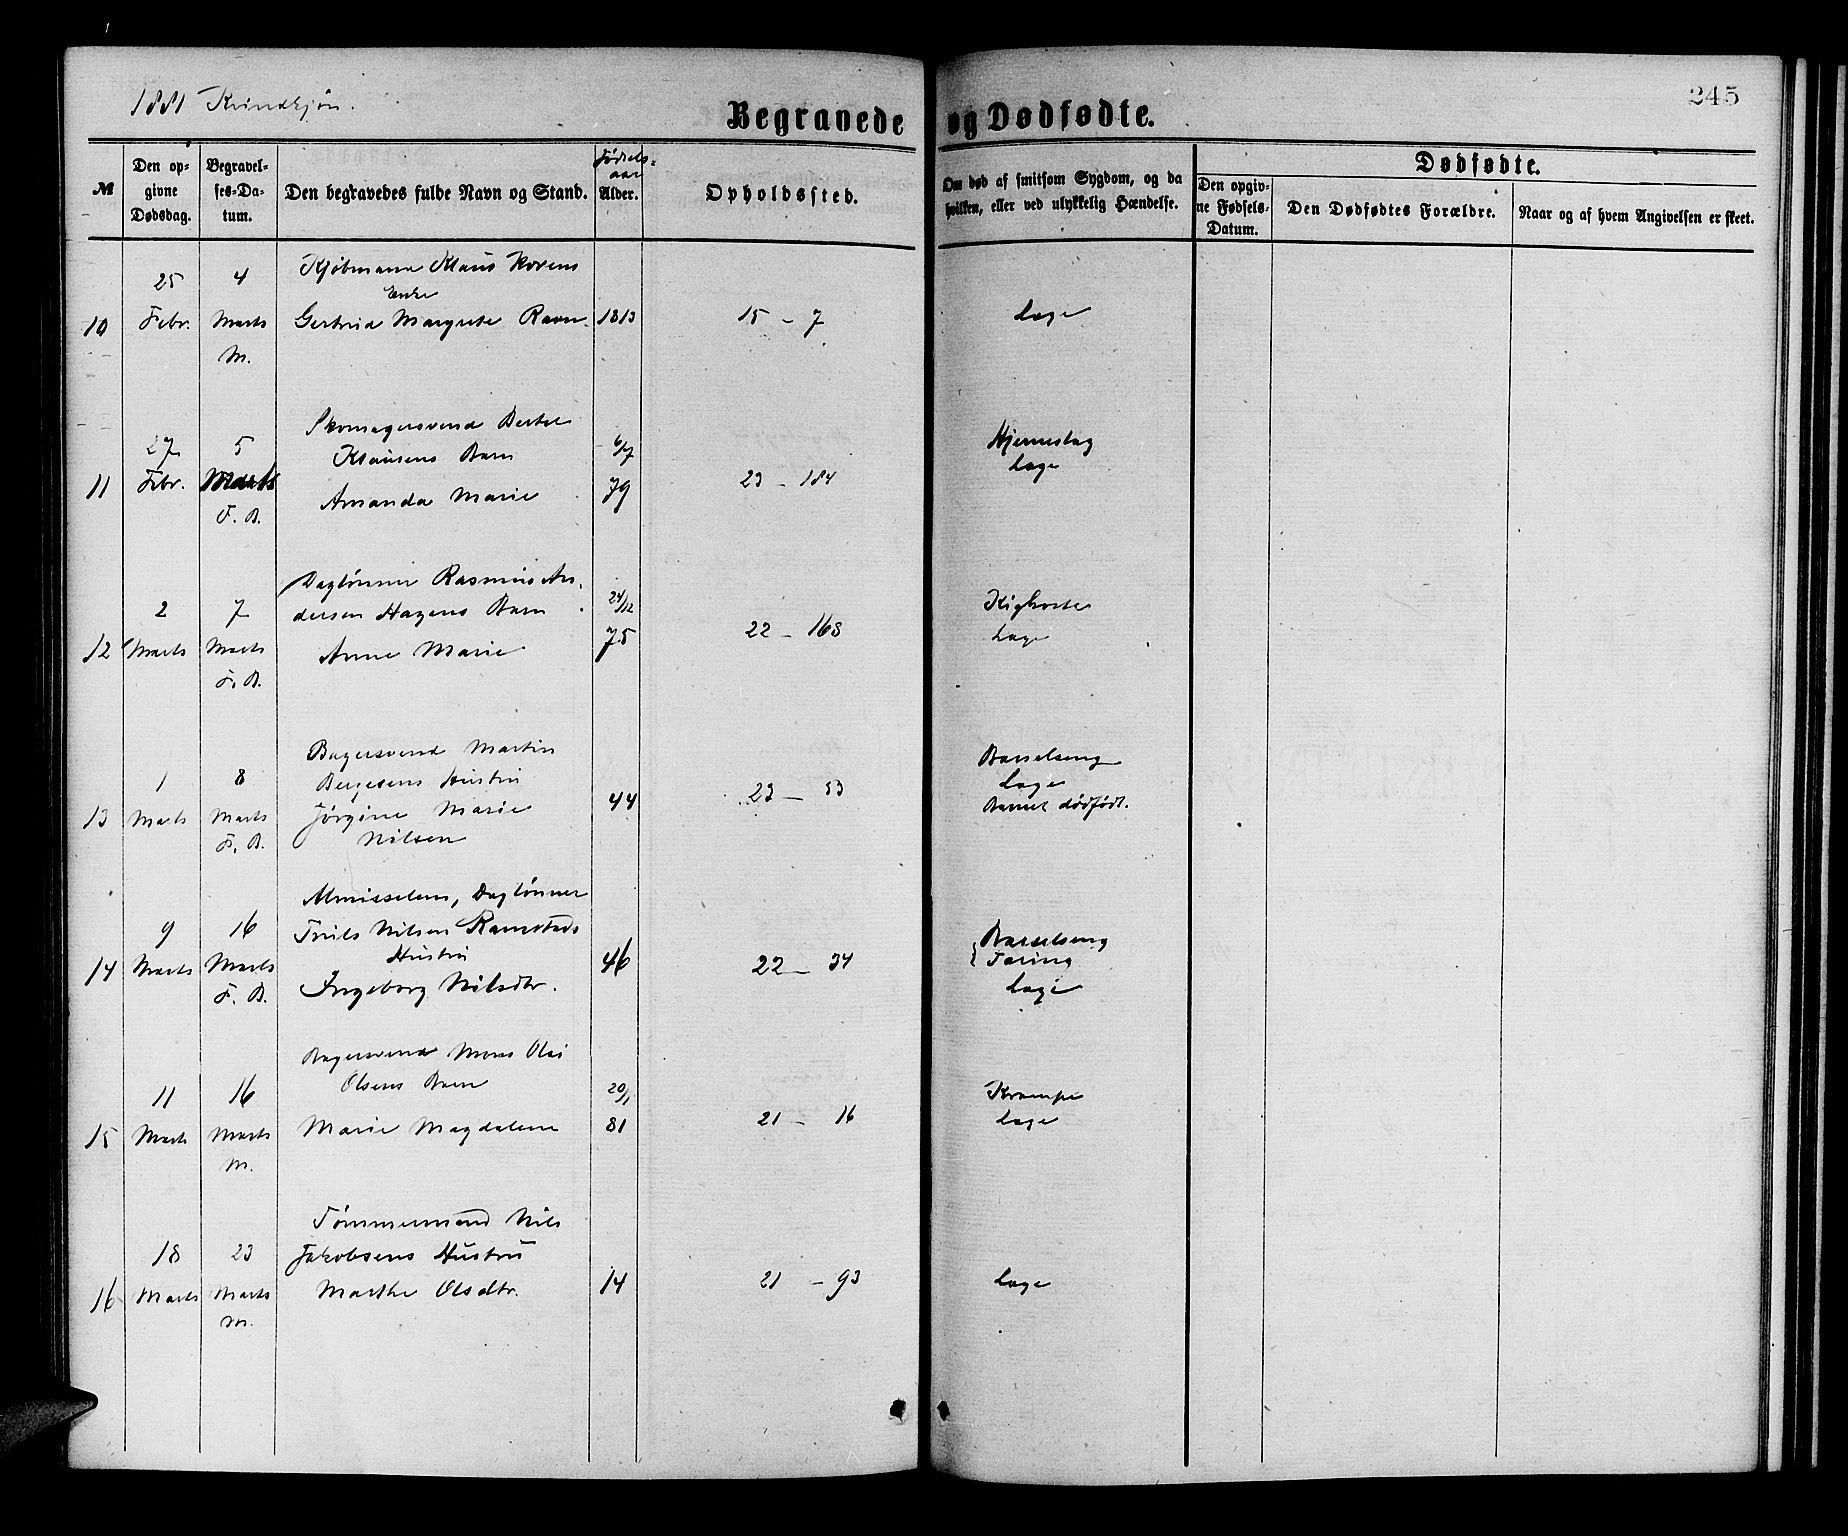 1881 Kvindkjøn.
245
Begravede og Dødfødte.
№
Den opgivne Dødsdag.
Begravelses-Datum.
Den begravedes fulde Navn og Stand.
Fødselsaar
Alder.
Opholdssted.
Om død af smitsom Sygdom, og da hvilken, eller ved ulykkelig Hændelse.
Dødfødte.
Den opgivne Fødsels-Datum.
Den Dødfødtes Forældre.
Naar og af hvem Angivelsen er skeet.
Kjøbmand Klaus
25 4 Enke
10 Febr. Marts Gertrud Margrete Ravn 1813 15 - 7 Læge
M.
Skomagersvend Bertel
27 5 Klausens Barn 6/7 Hjerneslag
11 Febr. Marts Amanda Marie 79 23 - 184 Læge
F. B.
Daglønner Rasmus An-
2 7 dersen Hagens Barn 24/12 Kighoste
12 Marts Marts Anne Marie 75 22 - 168 Læge
F. B.
Bagersvend Martin
1 8 Bergesens Hustru Barselseng
13 Marts Marts Jørgine Marie 44 23 - 53 Læge
F. B. Nilsen Barnet dødfødt.
Almisselem, Daglønner
9 16 Nilsen Ramstads Barselseng
Hustru Tæring
14 Marts Marts Ingeborg Nilsdtr. 46 22 - 34 Læge
F. B.
Bagersvend Mons Olai
11 16 Olsens Barn 20/1 Krampe
15 Marts Marts Marie Magdalene 81 21 - 16 Læge
M.
Tømmermand Nils
18 23 Jakobsens Hustru
16 Marts Marts Marthe Olsdtr. 14 21 - 93 Læge
M.